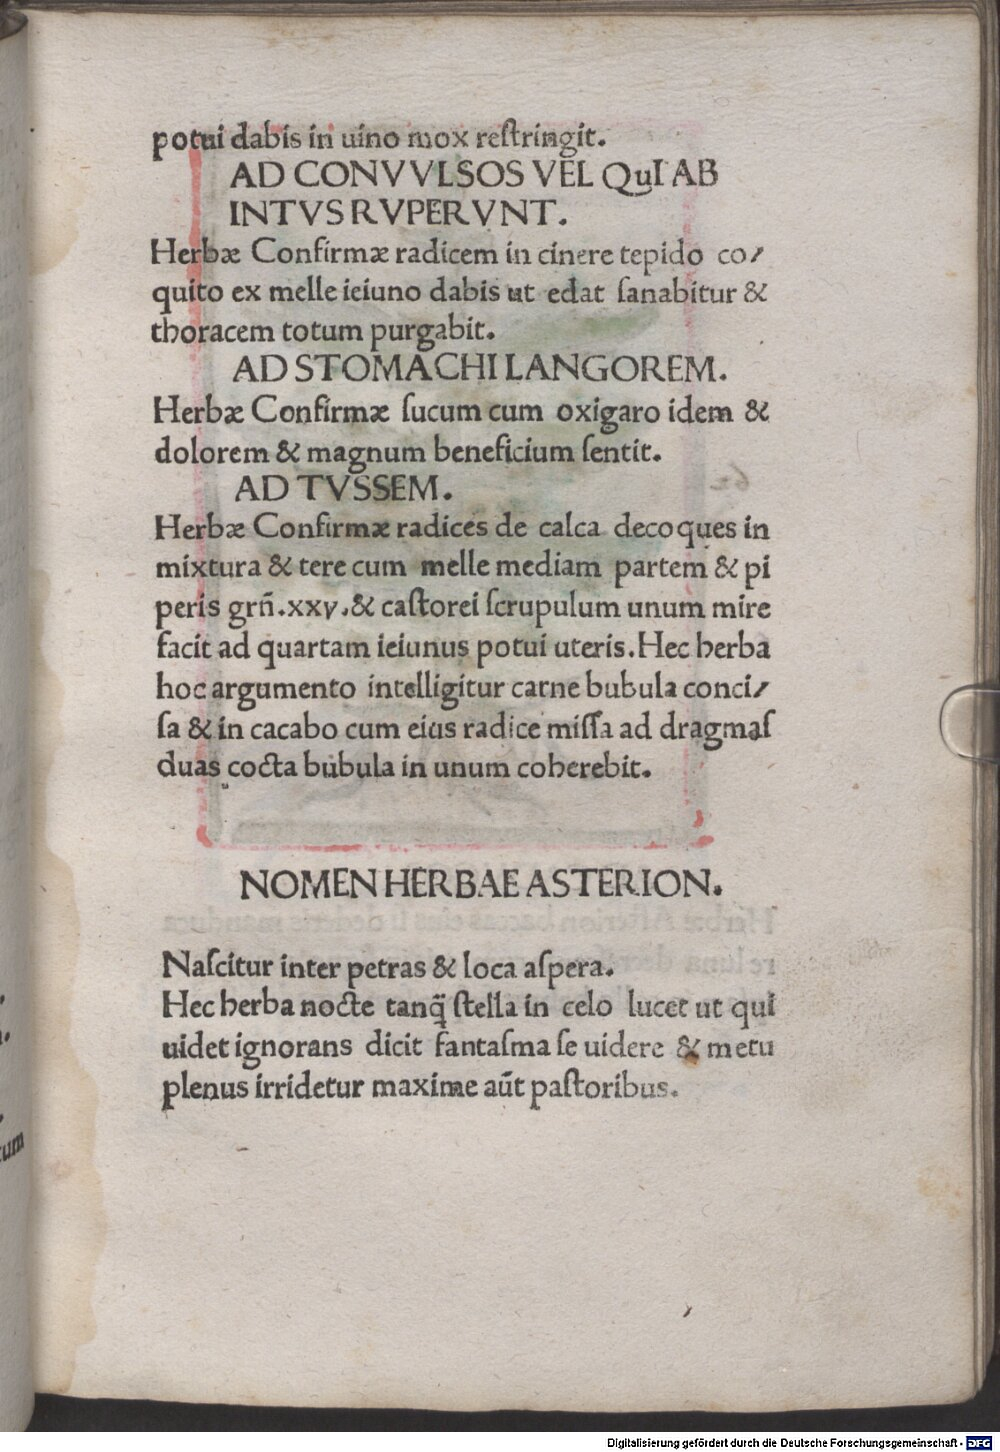 potui dabis in uino mox reſtringit.
AD CONVVLSOS VEL QuI AB
INTVS RVPERVNT.
Herbæ Confirmæ radicem in cinere tepido co/
quito ex melle ieiuno dabis ut edat ſanabitur &
thoracem totum purgabit.
AD STOMACHI LANGOREM.
Herbæ Confirmæ ſucum cum oxigaro idem &
dolorem & magnum beneficium ſentit.
AD TVSSEM.
Herbæ Confirmæ radices de calca decoques in
mixtura & tere cum melle mediam partem & pi
peris grñ.xxv.& caſtorei ſcrupulum unum mire
facit ad quartam ieiunus potui uteris. Hec herba
hoc argumento intelligitur carne bubula conci/
ſa & in cacabo cum eius radice miſſa ad dragmaſ
duas cocta bubula in unum coherebit.
NOMEN HERBAE ASTERION.
Naſcitur inter petras & loca aſpera.
Hec herba nocte tanq̃ ſtella in celo lucet ut qui
uidet ignorans dicit fantaſma ſe uidere & metu
plenus irridetur maxime aũt paſtoribus.
Digitalisierung gefördert durch die Deutsche Forschungsgemeinschaft - DFG